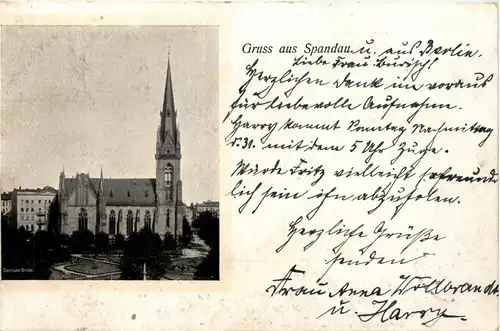 Gruss aus Spandau u. aus Berlin.
Liebe Frau Burisch!
Herzlichen Dank im voraus
für liebevolle Aufnahme.
Harry kommt Sonntag Nachmittag
d. 31. mit dem 5 Uhr Zuge.
Würde Fritz vielleicht so freund
lich sein ihn abzuholen.
Herzliche Grüße
senden
Frau Anna Wollbrandt
u. Harry.
Garnison-Kirche.